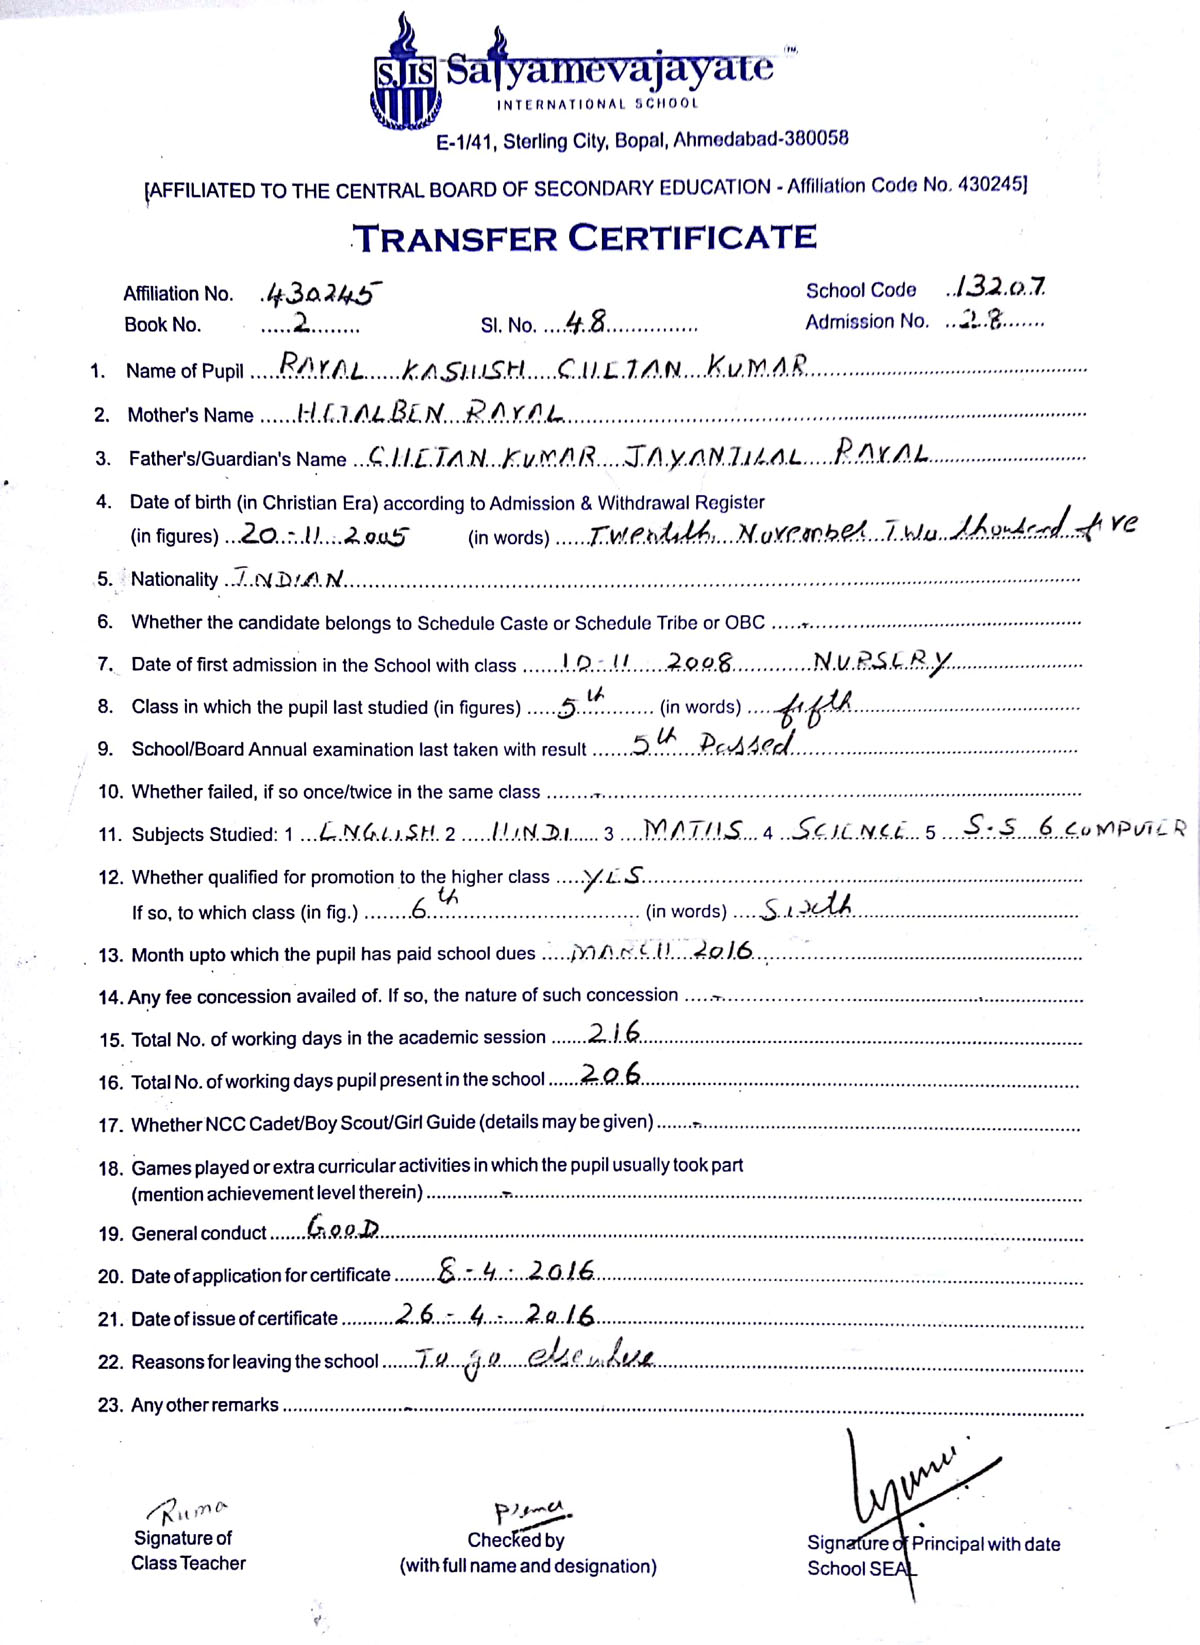 SJIS Satyamevajayate TM
INTERNATIONAL SCHOOL
E-1/41, Sterling City, Bopal, Ahmedabad-380058
[AFFILIATED TO THE CENTRAL BOARD OF SECONDARY EDUCATION - Affiliation Code No. 430245]
TRANSFER CERTIFICATE
Affiliation No. 430245 School Code 13207
Book No. 2 Sl. No. 48 Admission No. 28
1. Name of Pupil RAVAL KASHISH CHETAN KUMAR
2. Mother's Name HETALBEN RAVAL
3. Father's/Guardian's Name CHETAN KUMAR JAYANTILAL RAVAL
4. Date of birth (in Christian Era) according to Admission & Withdrawal Register
(in figures) 20-11-2005 (in words) Twentith November Two thousand five
5. Nationality INDIAN
6. Whether the candidate belongs to Schedule Caste or Schedule Tribe or OBC -
7. Date of first admission in the School with class 10-11 2008 NURSERY
8. Class in which the pupil last studied (in figures) 5th (in words) fifth
9. School/Board Annual examination last taken with result 5th Passed
10. Whether failed, if so once/twice in the same class -
11. Subjects Studied: 1 ENGLISH 2 HINDI 3 MATHS 4 SCIENCE 5 S-S 6 COMPUTER
12. Whether qualified for promotion to the higher class YES
If so, to which class (in fig.) 6th (in words) Sixth
13. Month upto which the pupil has paid school dues MARCH 2016
14. Any fee concession availed of. If so, the nature of such concession -
15. Total No. of working days in the academic session 216
16. Total No. of working days pupil present in the school 206
17. Whether NCC Cadet/Boy Scout/Girl Guide (details may be given) -
18. Games played or extra curricular activities in which the pupil usually took part
(mention achievement level therein) -
19. General conduct GOOD
20. Date of application for certificate 8-4-2016
21. Date of issue of certificate 26-4-2016
22. Reasons for leaving the school To go elsewhere
23. Any other remarks -
Ruma
Signature of Checked by Signature of Principal with date
Class Teacher (with full name and designation) School SEAL